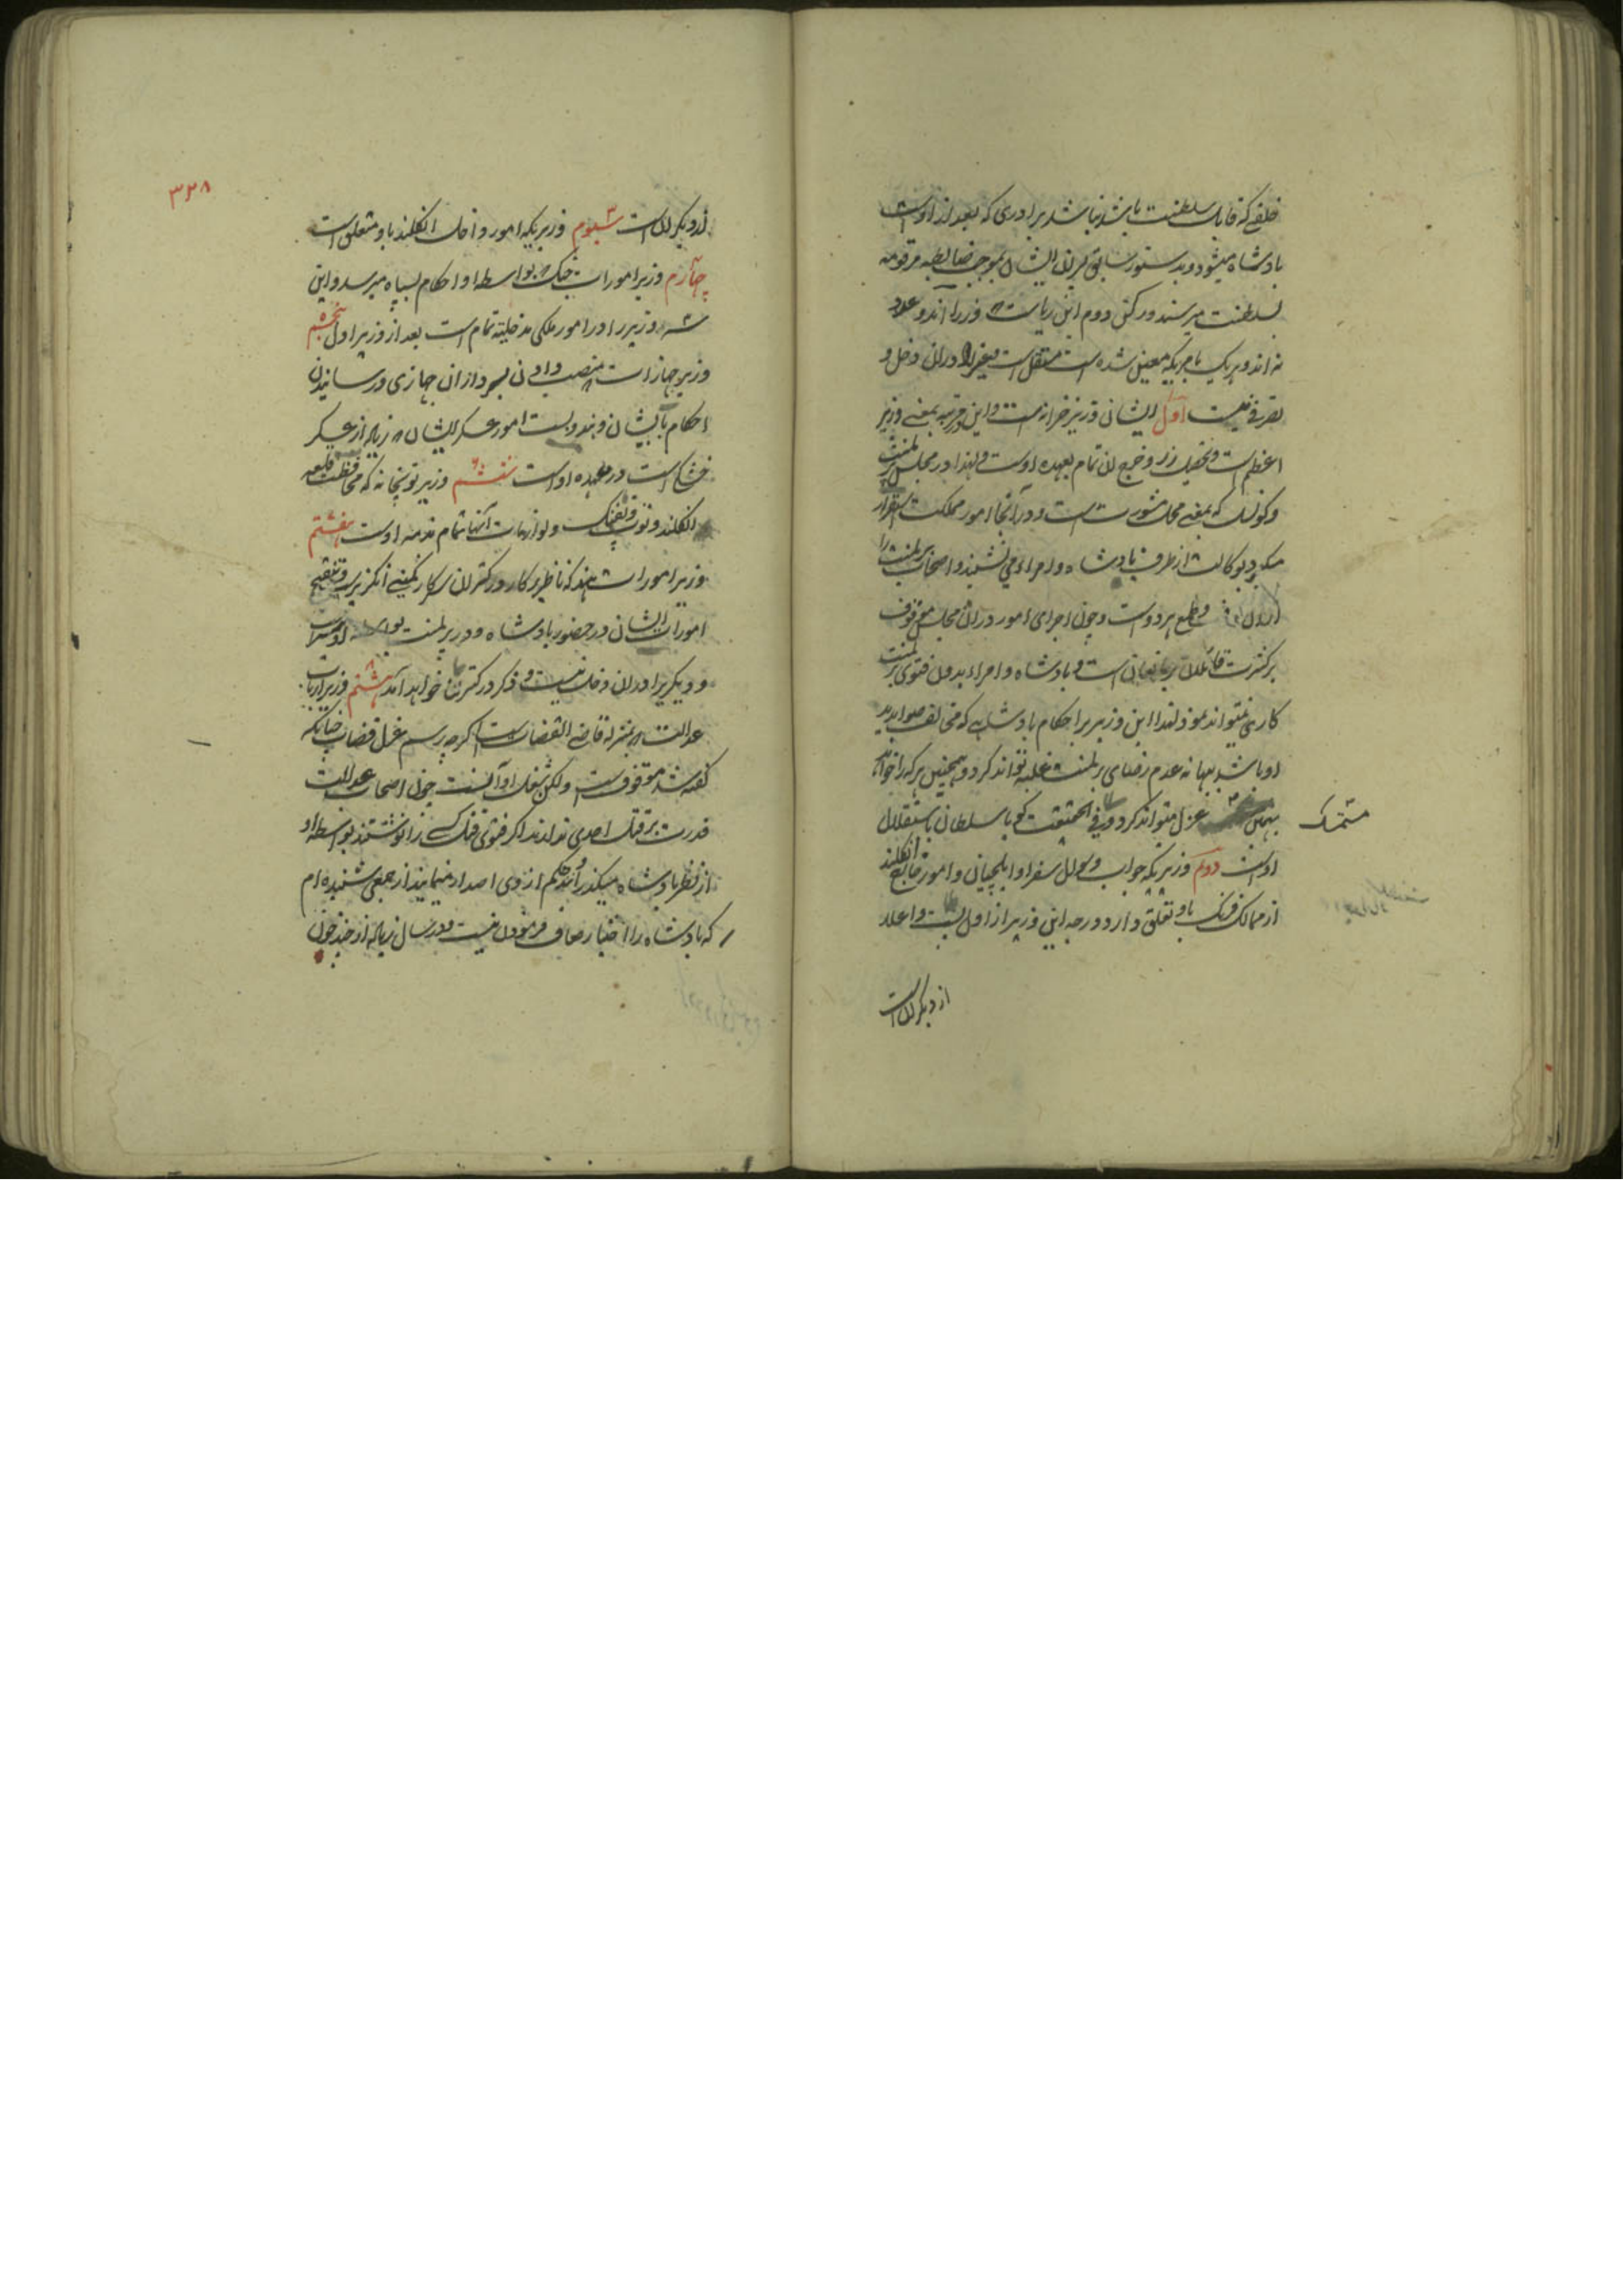 خلفی که قابل سلطنت باشد نباشد برادری که بعد از اوست
بادشاه میشود و بدستور سابق پسران ایشان بموجب ضابطه مرقومه
بسلطنت میرسند و رکن دوم این ریاست وزرا اند و عدد
نه اند و هر یک بامریکه معین شده است مستقل است و غیر را دران دخل و
تصرفی نیست اول ایشان وزیر خزانه است و این مرتبه بمعنی وزیر
اعظم است و تحصیل زر و خرج آن تمام بعهده اوست و لهذا در مجلس پرلمنت
و کونسل که بمعنی محل مشورت است و در آنجا امور مملکت استقرار
میگیرد بوکالت از طرف بادشاه و امراء می نشیند و اصحاب پرلمنت را
قطع هر دوست و چون اجرای امور دران مجلس موقوف
برکثرت قائلان است و بادشاه و امراء بدون فتوی پرلمنت
کاری نمیتوانند نمود لهذا این وزیر بر احکام بادشاهی که مخالف صوابدید
او باشد ببهانه عدم رضای پرلمنت غلبه تواند کرد و همچنین هر که را خواهد
بهمین عزل میتواند کرد و فی الحقیقت گویا سلطان باستقلال
متمسک
اوست دوم وزیریکه جواب و سوال سفرا و ایلچیان و امور خارج انگلند
از ممالک فرنگ باو تعلق دارد و درجه این وزیر از اول پست و اعلا
از دیگران است
۳۲۸
از دیگران است سیوم وزیریکه امور داخل انگلند باو متعلق است
چهارم وزیر امورات جنگ بواسطه او احکام بسپاه میرسد و این
سه وزیر را در امور ملکی مدخلیة تمام است بعد از وزیر اول پنجم
وزیر جهازات منصب دادن بسرداران جهازی و رسانیدن
احکام بایشان و بندوبست امور عسکر ایشان زیاده از عسکر
خشکی است در عهده اوست ششم وزیر توپخانه که محافظت قلعه
انگلند و توپ و تفنگ و لوازمات آنها تمام بذمه اوست هفتم
وزیر امورات هند که ناظر بر کار درکتران سرکار کمپنی انگریز و تنقیح
امورات ایشان در حضور بادشاه و در پرلمنت بواسطه اوست
و دیگریرا دران دخل نیست و ذکر درکتران خواهد آمد هشتم وزیر ارباب
عدالت بمنزله قاضی القضات است اگرچه رسم عزل قضات چنانکه
گفته شد موقوفست ولکن شغل او آنست چون اصحاب عدالت
قدرت بر قتل احدی ندارند اگر فتوی قتل کسی را نوشتند بواسطه او
از نظر بادشاه میگذرد و حکم ازوی اصدار مینمایند از جمعی شنیده ام
که بادشاه را اختیار معاف فرمودن نیست و در سال زیاده از چند خون